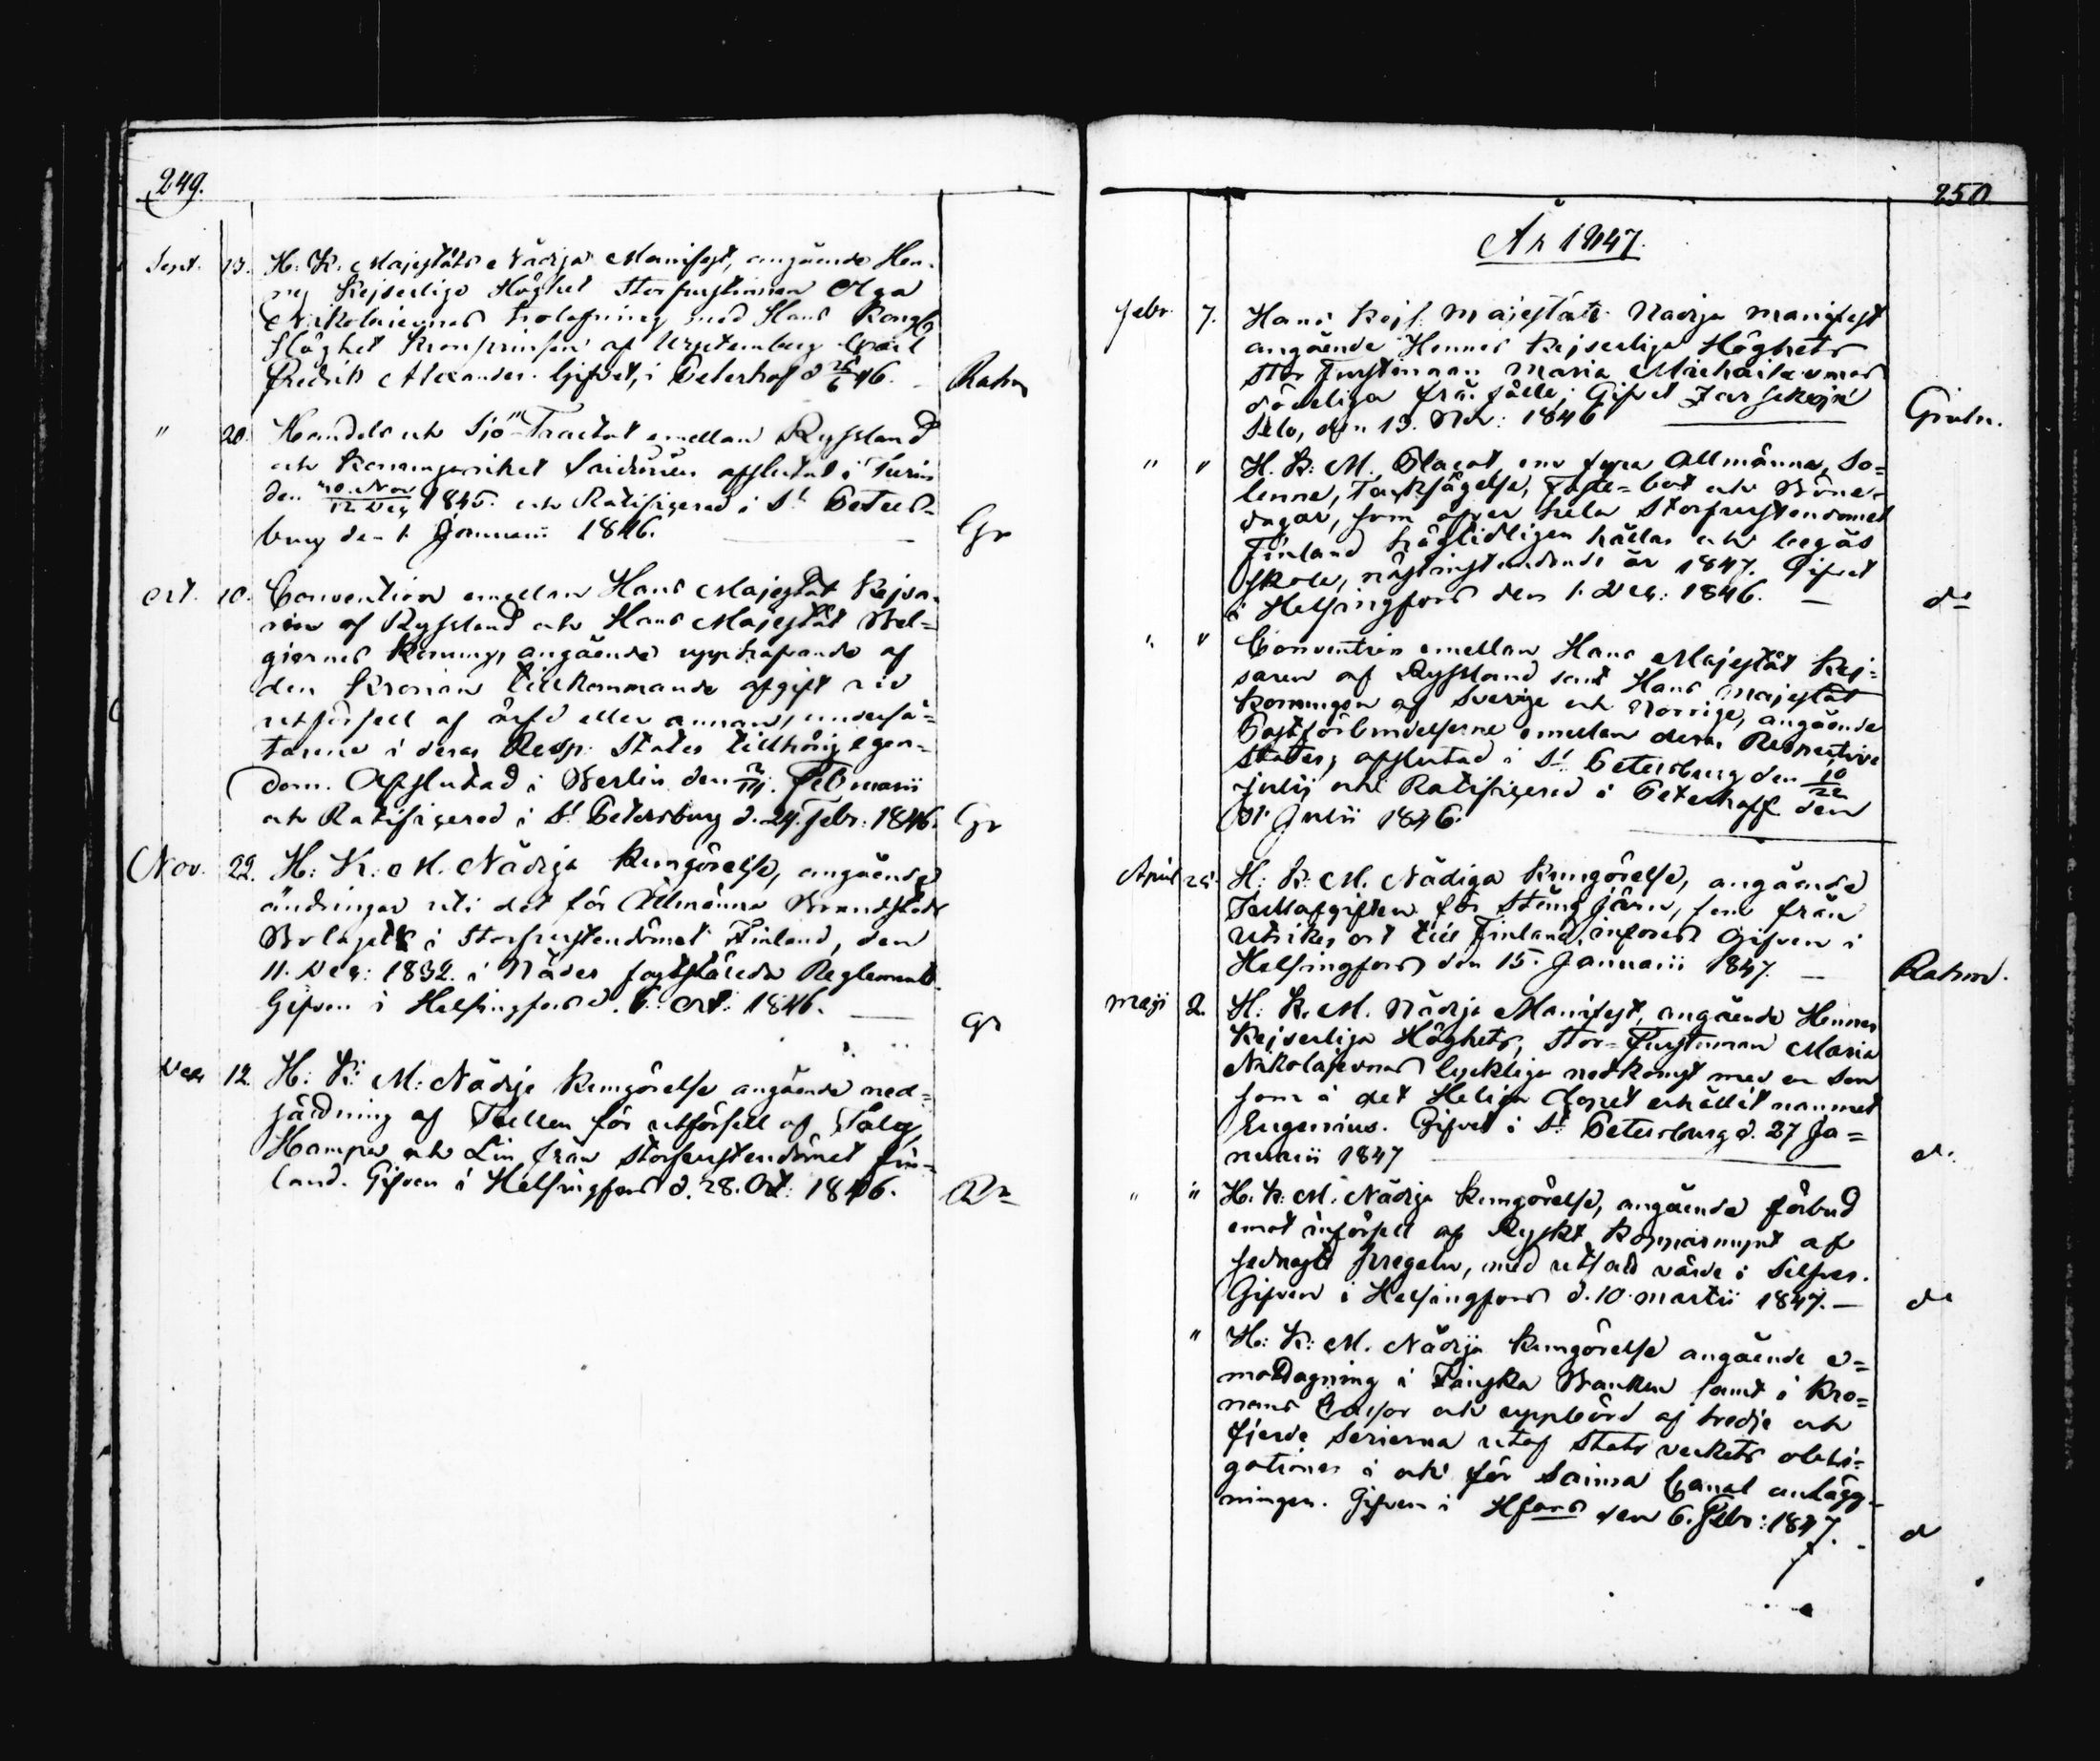 249.
Sept. 13. H: K. Majestäts Nådiga Manifest, angående Hen-
nes Kejserliga Höghet Storfurstinnan Olga
Nikolaievnas trolofning med Hans Kongl.
Höghet Kronprinsen af Würtemberg Carl
Fredrik Alexander. Gifvet, i Peterhof d 25/6 46. Rahm
" 20. Handels och Sjö-Tractat emellan Ryssland
och Konungariket Sardinien afslutat i Turin
den 30 Nov/12 Dec 1845. och Ratificerad i St Peters-
burg den 1. Januarii 1846. Gr
Oct. 10. Convention emellan Hans Majestät Kejsa-
ren af Ryssland och Hans Majestät Bel-
giernes Konung, angående upphäfvande af
den Kronan tillkommande afgift vid
utförsell af arfd eller annan, underså-
tarne i deras Resp. Stater tillhörig egen-
dom. Afslutad i Berlin den Februarii
och Ratificerad i St Petersburg d. 24. Febr: 1846. Gr
Nov. 22. H: K: M. Nådiga Kungörelse, angående
ändringar uti det för Allmänna Brandstods
Bolaget i Storfurstendömet Finland, den
11. Dec: 1832. i Nåder fastställda Reglemente.
Gifven i Helsingfors d. 6. Oct: 1846. Gr
Dec 12. H: K: M: Nådige Kungörelse angående ned-
sättning af Tullen för utförsell af Talg,
Hampa och Lin från Storfurstendömet Fin-
land. Gifven i Helsingfors d. 28. Oct: 1846.
250.
År 1847.
Febr. 7. Hans Kejs. Majestäts Nådiga manifest
angående Hennes Kejserliga Höghets
Stor Furstinnan Maria Michailovnas
dödeliga frånfälle; Gifvet Zarskoje
Selo, den 13. Nov: 1846
" " H. K: M. Placat om fyra Allmänna, So-
lenne, Tacksägelse, Faste-Bot och Böne-
dagar, som öfver hela Storfurstendömet
Finland högtidligen hållas och begås
skola, nästinstundande år 1847. Gifvet
i Helsingfors den 1. Dec: 1846. do
" " Convention emellan Hans Majestät Kej-
saren af Ryssland samt Hans Majestät
Konungen af Sverige och Norrige, angående
Postförbindelserne emellan deras Respective
Stater; afslutad i St Petersburg den 10/22
Julij och Ratificerad i Peterhoff den
31. Julii 1846.
April 25. H: K: M. Nådiga Kungörelse, angående
Tullafgiften för Stångjärn, som från
utrikes ort till Finland införes Gifven i
Helsingfors den 15. Januarii 1847. Rahm.
Maji 2. H: K. M. Nådige Manifest, angående Hennes
Kejserliga Höghets, Stor-Furstinnan Maria
Nikolajevnas lyckliga nedkomst med en Son
som i det Heliga Dopet erhållit namnet
Eugenius. Gifvet i St Petersburg d. 27 Ja-
nuarii 1847 do
" " H: K: M. Nådige Kungörelse, angående förbud
emot införsell af Ryskt Kopparmynt af
sednaste prägeln, med utsatt värde i Silfver.
Gifven i Helsingfors d. 10. Martii 1847. do
" H: K: M. Nådige Kungörelse angående e-
mottagning i Finska Banken samt i Kro-
nans Cassor och uppbörd af tredje och
fjerde Serierna utaf Stats verkets obli-
gationer i och för Saima Canal anlägg-
ningen. Gifven i Hfors den 6. Febr: 1847. d